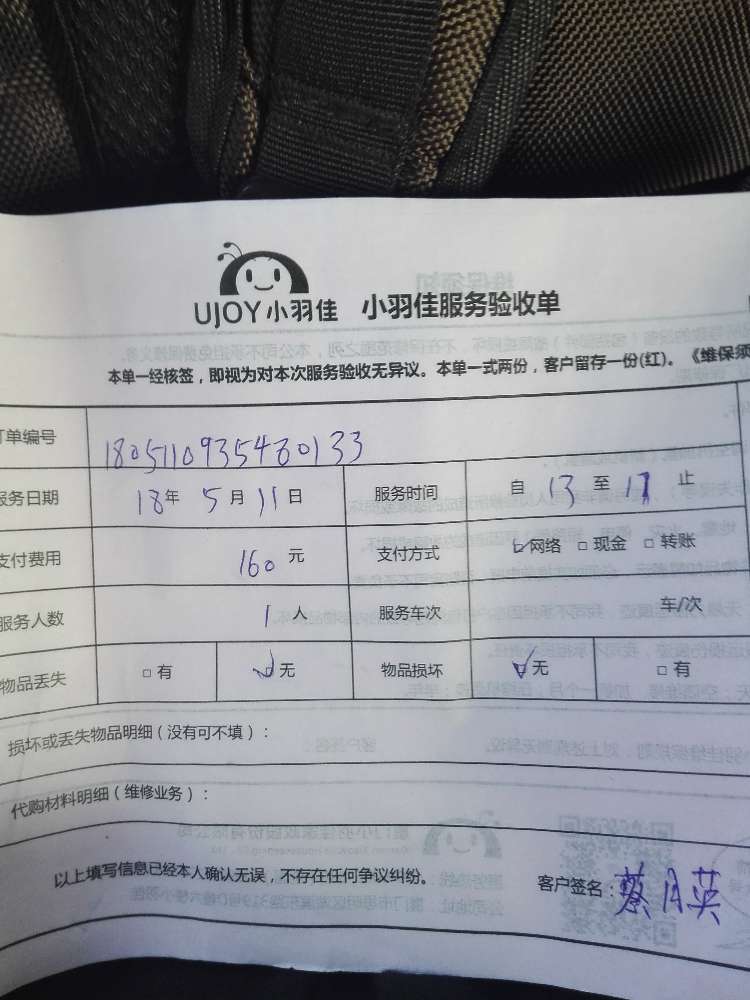 UJOY小羽佳 小羽佳服务验收单
本单一经核签，即视为对本次服务验收无异议。本单一式两份，客户留存一份(红)。《维保须
订单编号 1805110935480133
服务日期 18年 5月 11日 服务时间 自 13 至 17 止
支付费用 160元 支付方式 ☑网络 □现金 □转账
服务人数 1人 服务车次 车/次
物品丢失 □有 ☑无 物品损坏 ☑无 □有
损坏或丢失物品明细（没有可不填）：
代购材料明细（维修业务）：
以上填写信息已经本人确认无误，不存在任何争议纠纷。 客户签名：蔡月英